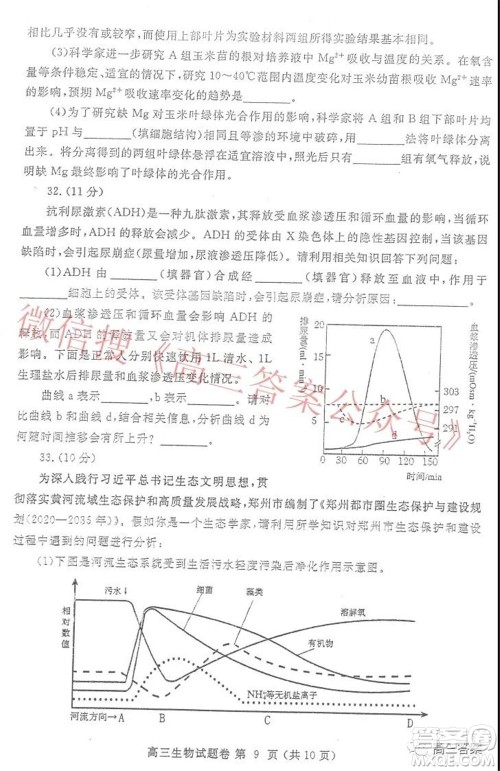 相比几乎没有变化，而使用上部叶片为实验材料两组所得实验结果基本相同。
(3)科学家进一步研究 A 组玉米苗的根对培养液中 Mg²⁺吸收与温度的关系。在氧含
量等条件稳定、适宜的情况下，研究 10～40℃范围内温度变化对玉米幼苗根吸收 Mg²⁺速率
的影响，预期 Mg²⁺吸收速率变化的趋势是________。
(4)为了研究缺 Mg 对玉米叶绿体光合作用的影响，科学家将 A 组和 B 组下部叶片均
置于 pH 与________(填细胞结构)相同且等渗的环境中破碎，用________法将叶绿体分离
出来。将分离得到的两组叶绿体悬浮在适宜溶液中，照光后只有________组有氧气释放，说
明缺 Mg 最终影响了叶绿体的光合作用。
32.(11 分)
抗利尿激素(ADH)是一种九肽激素，其释放受血浆渗透压和循环血量的影响，当循环
血量增多时，ADH 的释放会减少。ADH 的受体由 X 染色体上的隐性基因控制，当该基因
缺陷时，会引起尿崩症(尿量增加，尿液渗透压降低)。请利用相关知识回答下列问题：
(1)ADH 由________(填器官)合成经________(填器官)释放至血液中，作用于
________细胞上的受体。该受体受基因缺陷时，会引起尿崩症，请分析原因：________。
(2)血浆渗透压和循环血量会影响 ADH 的
释放，而 ADH 的释放量又会对机体排尿量造成
影响。下图是正常人分别快速饮用 1L 清水、1L
生理盐水后排尿量和血浆渗透压变化情况。
曲线 a 表示________，b 表示________。请对
比曲线 b 和曲线 d，结合相关信息，分析曲线 d 为
何随时间推移会有所上升？________。
排尿量(ml/min)
20
15
10
5
0
a
b
c
d
303
297
293
291
血浆渗透压(mOsm·kg⁻¹H₂O)
0 30 60 90 120 150
时间/min
33.(10 分)
为深入践行习近平总书记生态文明思想，贯
彻落实黄河流域生态保护和高质量发展战略，郑州市编制了《郑州都市圈生态保护与建设规
划(2020—2035 年)》，假如你是一个生态学家，请利用所学知识对郑州市生态保护和建设
过程中遇到的问题进行分析：
(1)下图是河流生态系统受到生活污水轻度污染后净化作用示意图。
污水↓
细菌
藻类
溶解氧
有机物
NH₄⁺等无机盐离子
相对数值
河流方向→A
B
C
D
高三生物试题卷 第 9 页(共 10 页)
微信搜《高三答案公众号》
高三答案